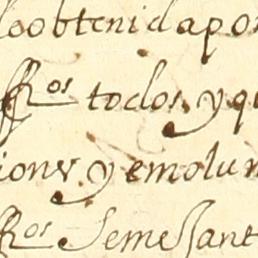 lo obtenida por
ffRos todos, y qu
iones y emolum
ffRos Semejant